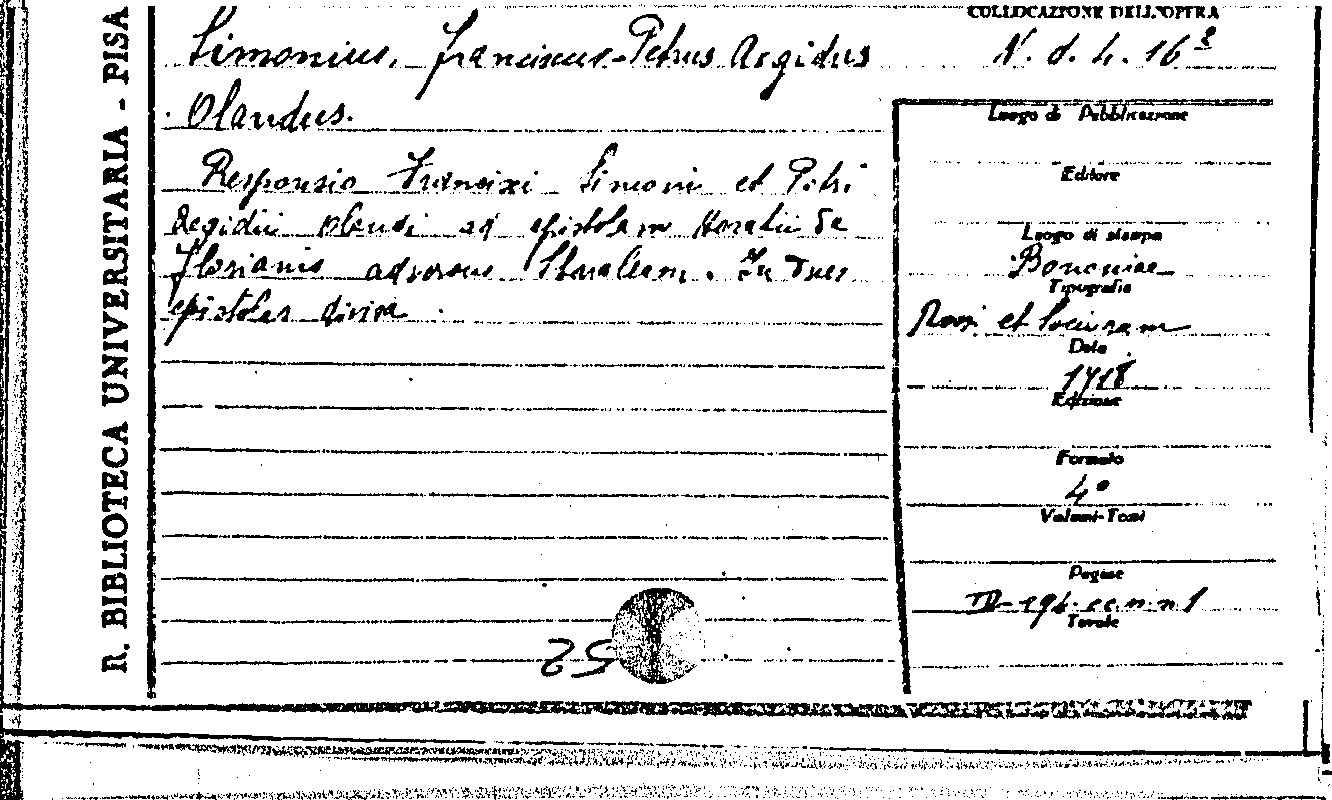 n. BIBLIOTECA UNIVERSITARIA - PISA
COLLOCAZIONE DELL'OPERA
N. d. 4. 16²
Simonius, Franciscus-Petrus Aegidus
Olandus.
Responsio Francixi Simoni et Petri
Aegidii olandi ad epistolam Horatii de
Florianis adversus Sbaraleam. In duas
epistolas divisa.
Luogo di Pubblicazione
Editore
Luogo di stampa
Bononiae
Tipografia
Rossi et sociorum
Data
1718
Edizione
Formato
4°
Volumi-Tomi
Pagine
cc. n. n. 1
Tavole
52